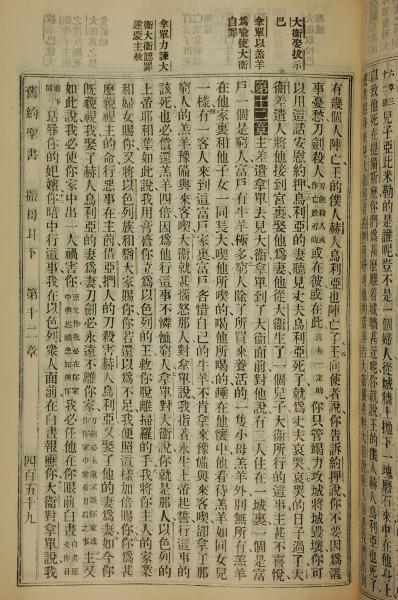 兒子亞比米勒的是誰呢豈不是一個婦人從城牆上拋下一塊磨石來中在他身上
以致他死在提備斯麼你們爲甚麼離着城牆甚近呢你就說王的僕人赫人烏利亞也死了
大衞娶拔示巴
拿單以羔羊爲喻使大衞自罪
拿單力諫大衞大衞認罪遂蒙主赦
有幾個人陣亡王的僕人赫人烏利亞也陣亡了王向使者說你告訴約押說你不要因這
事憂愁刀劍殺人或在彼或在此你只管竭力攻城將城毀壞你可
以用這話安慰約押烏利亞的妻聽見丈夫烏利亞死了就爲丈夫哀哭哀哭的日子過了大
衞差遣人將他接到宮裏娶他爲妻他從大衞生了一個兒子大衞所行的這事主甚不喜悅
第十二章主差遣拿單去見大衞拿單到了大衞面前對他說有三人住在一城裏一個是富
戶一個是窮人富戶有牛羊極多窮人除了所買來養活的一隻小母羔羊外別無所有羔羊
在他家裏和他子女一同長大喫他所喫的喝他所喝的睡在他懷中他看待羔羊如同女兒
一樣有一客人來到這富戶家裏富戶吝惜自己的牛羊不肯拿來豫備與來客喫卻拿了那
窮人的羔羊豫備與來客喫大衞就甚惱怒那人對拿單說我指着永生上帝起誓行這事的
該死他必償還羔羊四倍因爲他行這事不憐恤窮人拿單對大衞說你就是那人以色列的
上帝耶和華如此說我用膏膏你立爲以色列的王救你脫離掃羅的手我將你主人的家業
和婦女賜你又將以色列族和猶大家賜你你若還以爲不足我便照這樣加倍賜你你爲甚
麼藐視主的命行惡事在主前借亞捫人的刀殺害赫人烏利亞又娶了他的妻爲妻如今你
既藐視我娶了赫人烏利亞的妻爲妻刀劍必永遠不離你家主又
如此說我必使你家中出一大禍害你我必任他在你眼前白晝
玷辱你的妃嬪你暗中行這事我在以色列衆人面前在白晝報應你大衞對拿單說我
舊約聖書 撒母耳下 第十二章 四百五十九